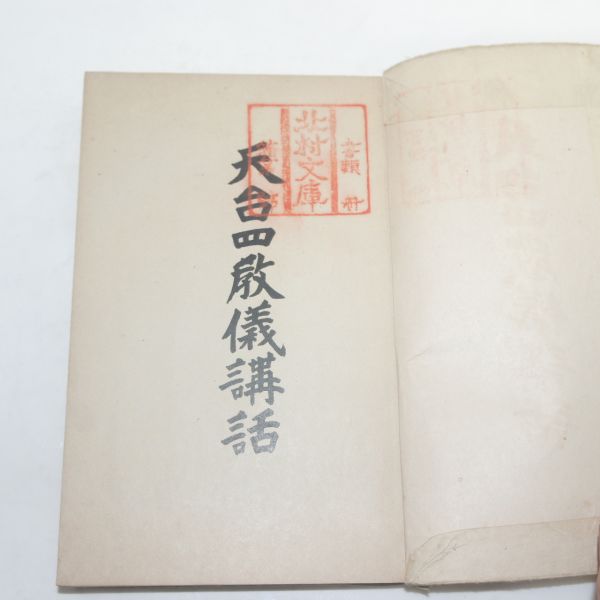 天台四教儀講話
北村文庫
書類
冊